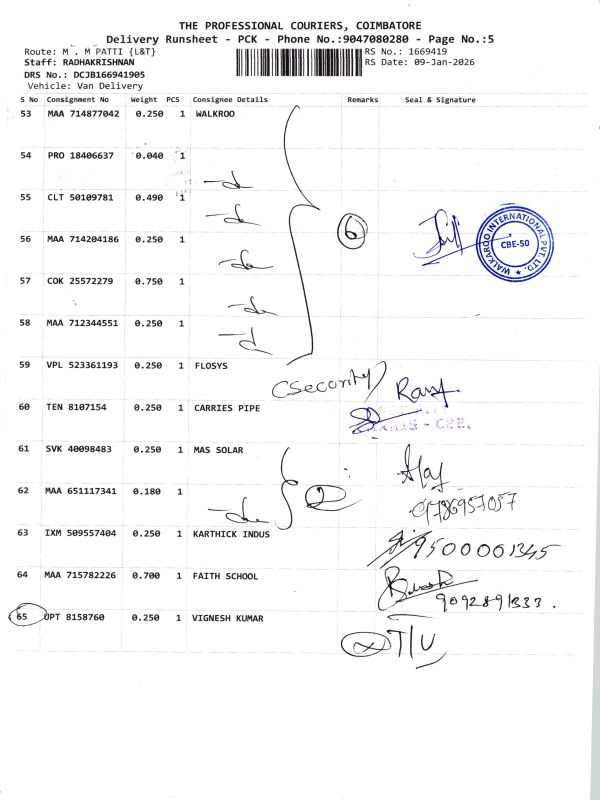 THE PROFESSIONAL COURIERS, COIMBATORE
Delivery Runsheet - PCK - Phone No.:9047080280 - Page No.:5
Route: M . M PATTI {L&T}
RS No.: 1669419
Staff: RADHAKRISHNAN
RS Date: 09-Jan-2026
DRS No.: DCJB166941905
Vehicle: Van Delivery
S No Consignment No Weight PCS Consignee Details Remarks Seal & Signature
53 MAA 714877042 0.250 1 WALKROO
54 PRO 18406637 0.040 1
-do
55 CLT 50109781 0.490 1
-do
6
WALKAROO INTERNATIONAL PVT. LTD. ★ CBE-50
56 MAA 714204186 0.250 1
-do
57 COK 25572279 0.750 1
-do
58 MAA 712344551 0.250 1
-do
59 VPL 523361193 0.250 1 FLOSYS
(Security)
60 TEN 8107154 0.250 1 CARRIES PIPE
- CBE.
61 SVK 40098483 0.250 1 MAS SOLAR
62 MAA 651117341 0.180 1
-do
2
9786957057
63 IXM 509557404 0.250 1 KARTHICK INDUS
9500001345
64 MAA 715782226 0.700 1 FAITH SCHOOL
9092891333.
65 UPT 8158760 0.250 1 VIGNESH KUMAR
T/U